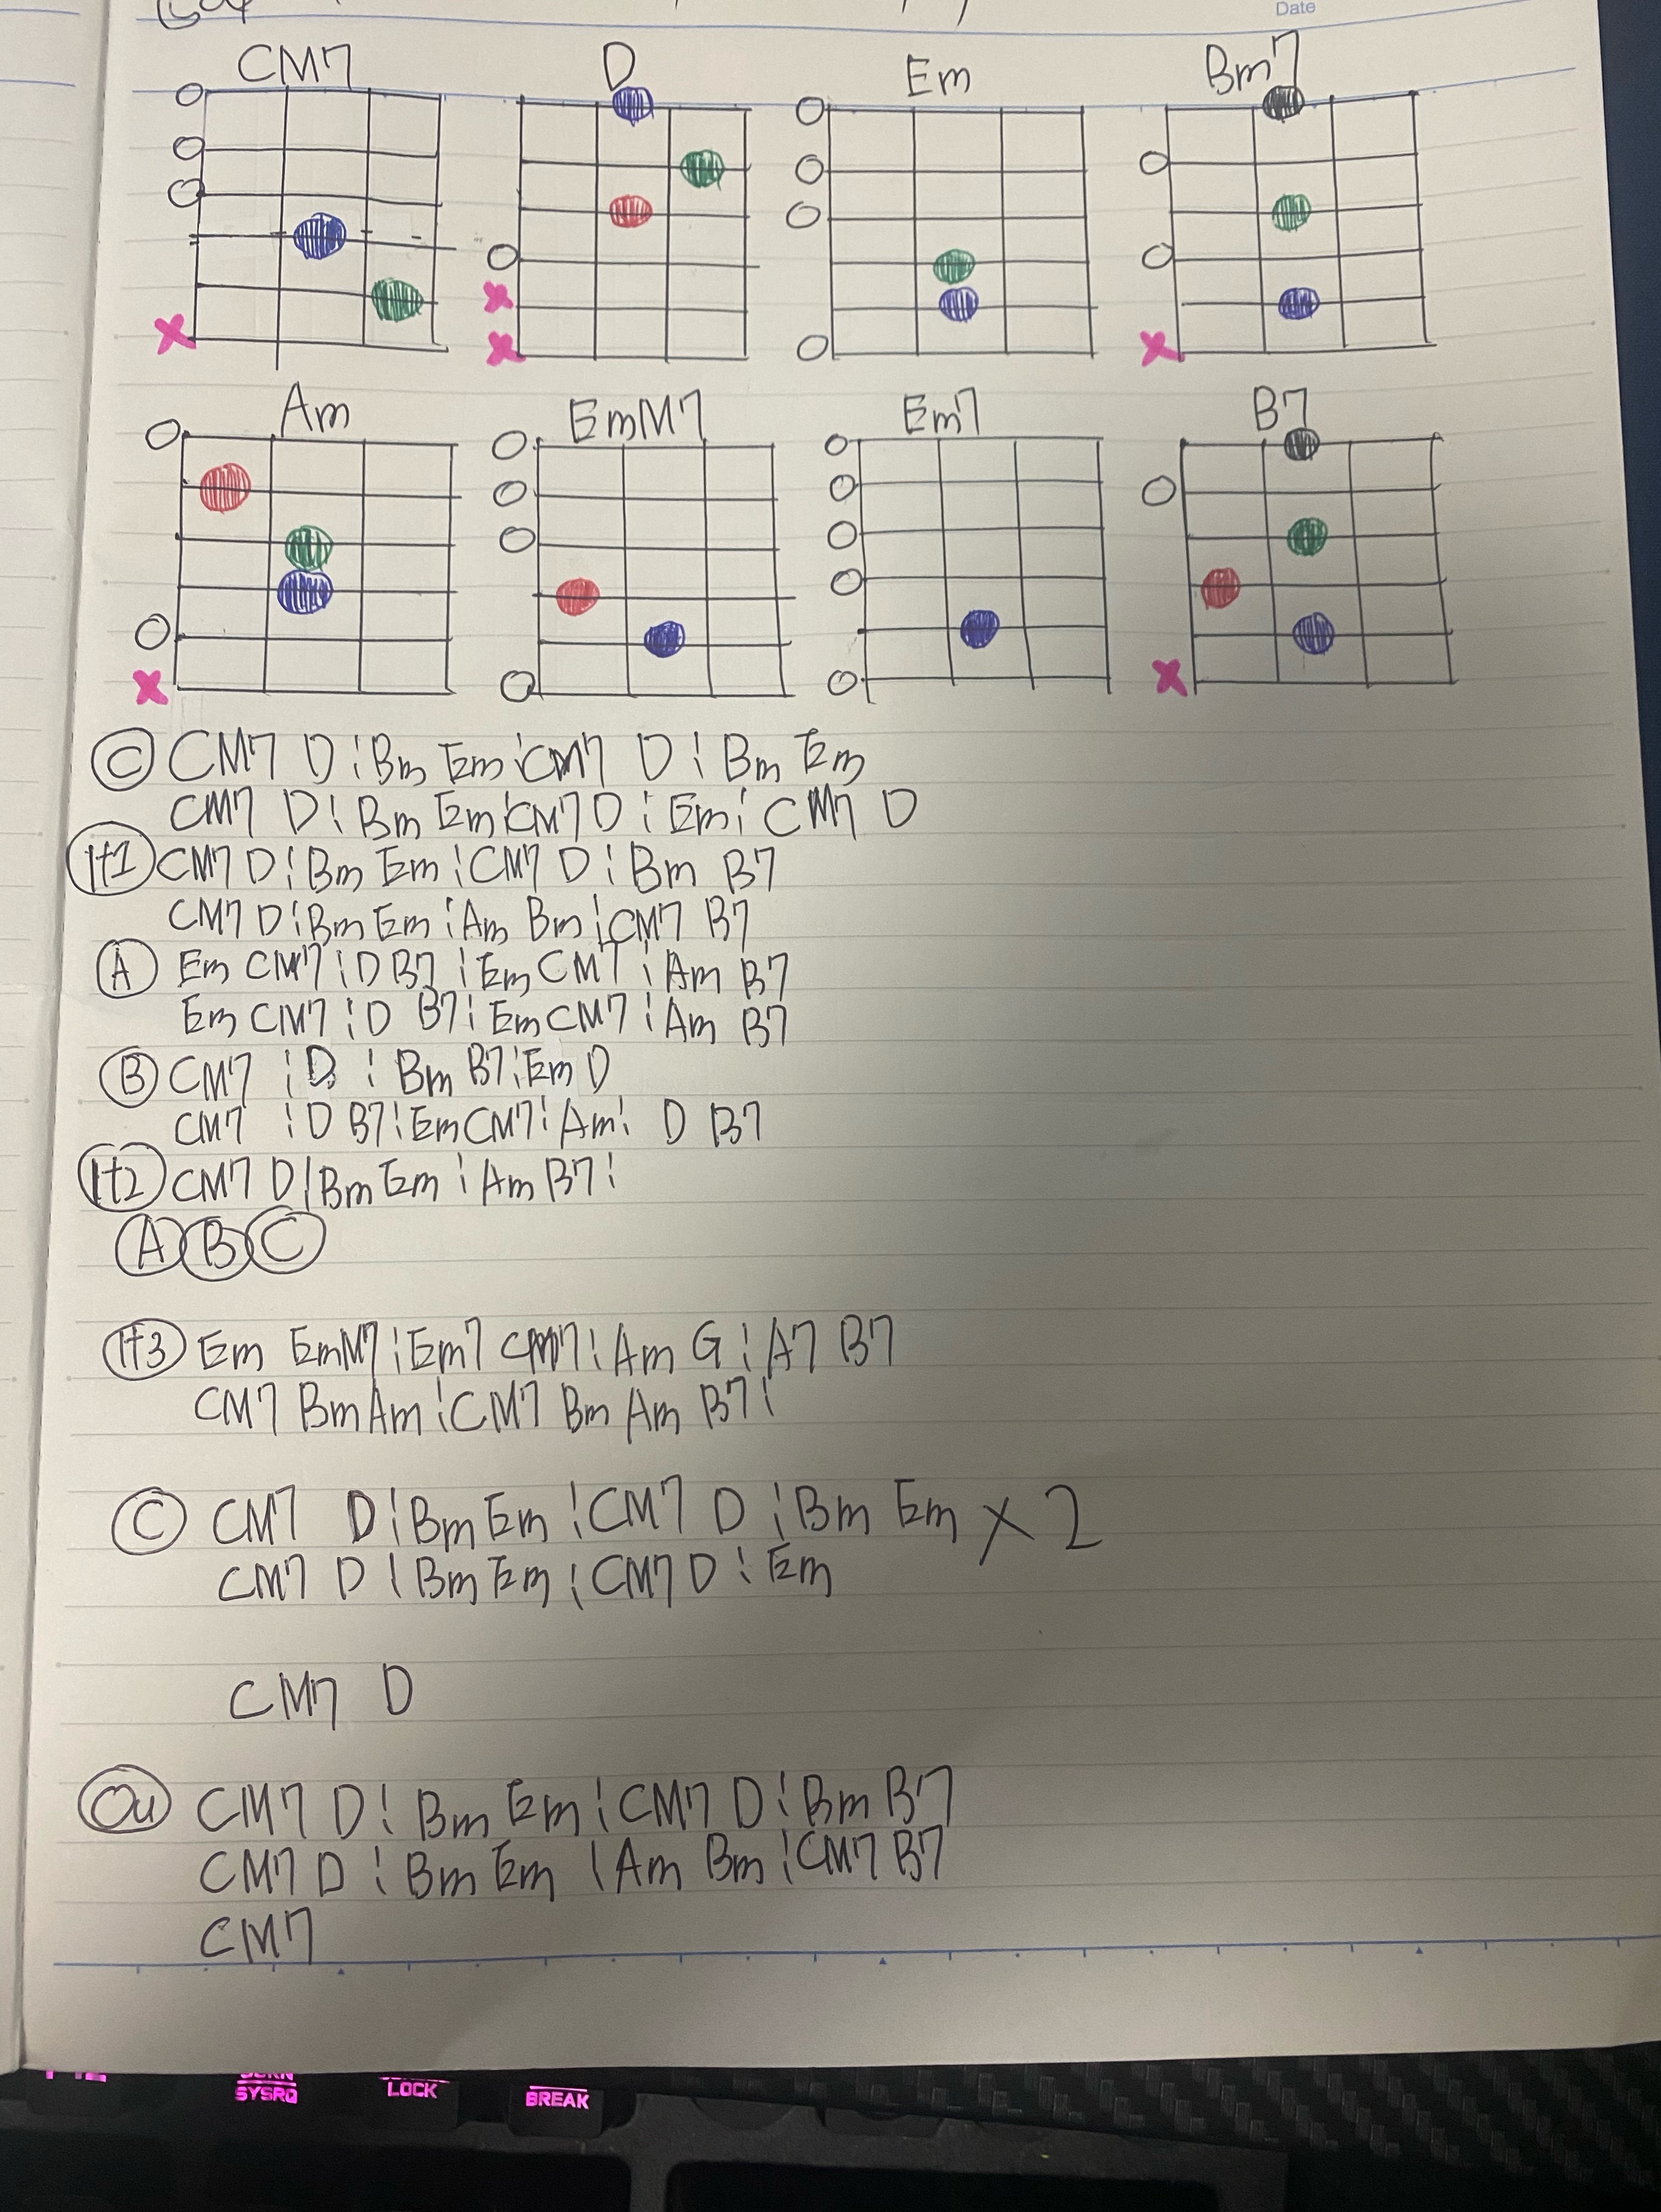 Date
CM7 D Em Bm7
Am EmM7 Em7 B7
Ⓒ CM7 D ¦ Bm Em ¦ CM7 D ¦ Bm Em
CM7 D ¦ Bm Em ¦ CM7 D ¦ Em ¦ CM7 D
間1 CM7 D ¦ Bm Em ¦ CM7 D ¦ Bm B7
CM7 D ¦ Bm Em ¦ Am Bm ¦ CM7 B7
Ⓐ Em CM7 ¦ D B7 ¦ Em CM7 ¦ Am B7
Em CM7 ¦ D B7 ¦ Em CM7 ¦ Am B7
Ⓑ CM7 ¦ D ¦ Bm B7 ¦ Em D
CM7 ¦ D B7 ¦ Em CM7 ¦ Am ¦ D B7
CM7 D | Bm Em ¦ Am B7 ¦
Ⓐ Ⓑ Ⓒ
Em EmM7 ¦ Em7 CM7 ¦ Am G ¦ A7 B7
CM7 Bm Am ¦ CM7 Bm Am B7 ¦
Ⓒ CM7 D ¦ Bm Em ¦ CM7 D ¦ Bm Em × 2
CM7 D ¦ Bm Em ¦ CM7 D ¦ Em
CM7 D
Ou CM7 D ¦ Bm Em ¦ CM7 D ¦ Bm B7
CM7 D ¦ Bm Em ¦ Am Bm ¦ CM7 B7
CM7
SYSRQ LOCK BREAK